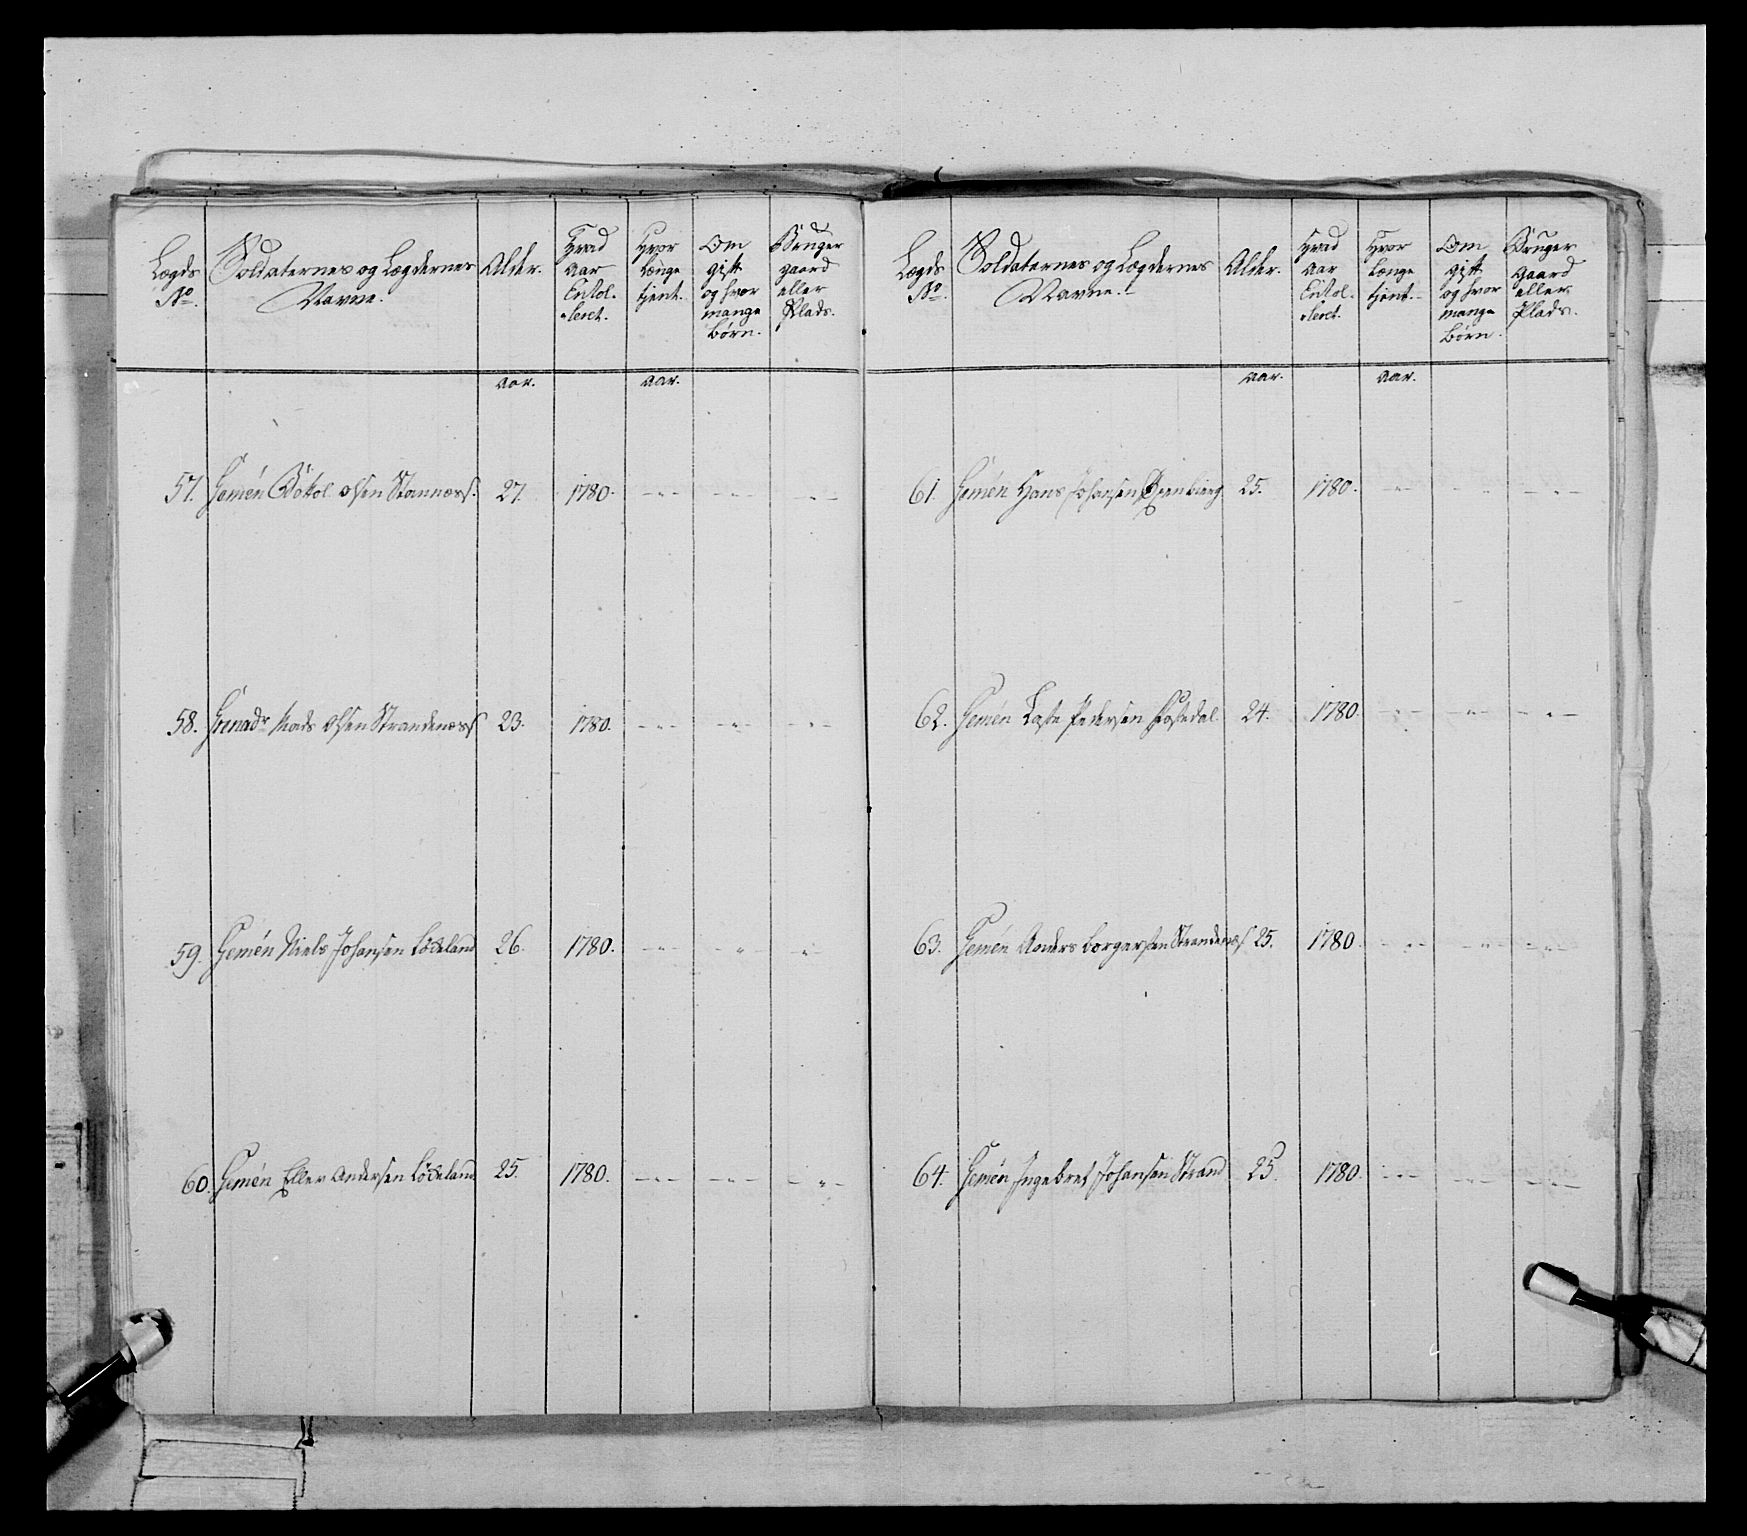 Lægds No.
Soldaternes og Lægdernes Navne.
Alder.
Hvad Aar Enrol-leret.
Hvor Længe tjent.
Om gift og hvor mange Børn.
Bruger gaard eller Plads.
aar. aar.
57. Gemén Olsen Stannæss. 27. 1780. -"- -"- -"-
58. Grenadr Mads Olsen Strandenæss 23. 1780. -"- -"- -"-
59. Gemén Niels Johansen Lödeland 26. 1780. -"- -"- -"-
60. Gemén Ellev Andersen Lödeland 25. 1780. -"- -"- -"-
Lægds No.
Soldaternes og Lægdernes Navne.
Alder.
Hvad Aar Enrol-leret.
Hvor Længe tjent.
Om gift og hvor mange Børn.
Bruger Gaard eller Plads.
aar. aar.
61. Gemén Hans Johansen 25. 1780. -"- -"- -"-
62. Gemén Pedersen 24. 1780. -"- -"- -"-
63. Gemén Anders Borgersen Strandenæs 25. 1780. -"- -"- -"-
64. Gemén Ingebret Johansen Strand 25. 1780. -"- -"- -"-